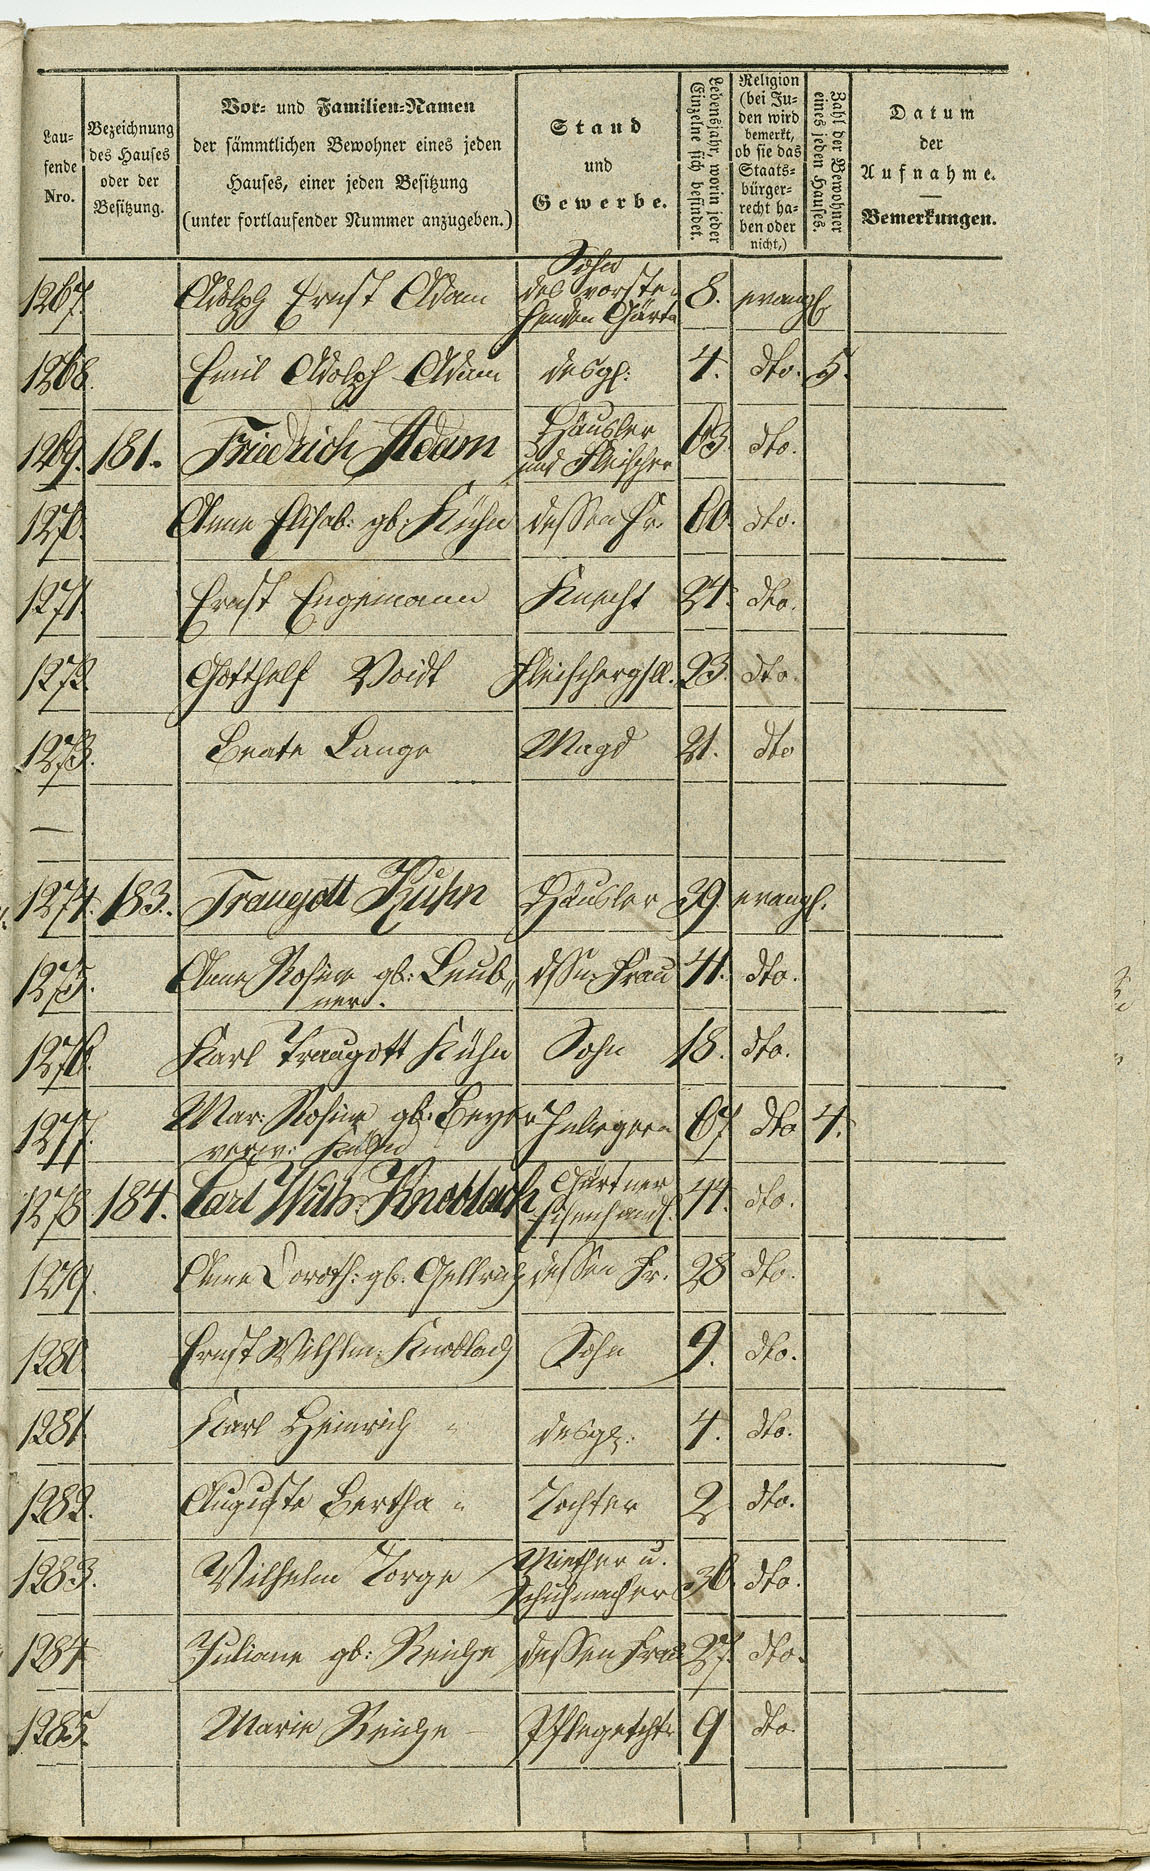 Lau-
fende
Nro.
Bezeichnung
des Hauses
oder der
Besitzung.
Vor- und Familien-Namen
der sämmtlichen Bewohner eines jeden
Hauses, einer jeden Besitzung
(unter fortlaufender Nummer anzugeben.)
Stand
und
Gewerbe.
Lebensjahr, worin jeder
Einzelne sich befindet.
Religion
(bei Ju-
den wird
bemerkt,
ob sie das
Staats-
bürger-
recht ha-
ben oder
nicht,)
Zahl der Bewohner
eines jeden Hauses.
Datum
der
Aufnahme.
Bemerkungen.
1267. Adolph Ernst Adam Sohn
des vorste-
henden Gärtn 8. evangl
1268. Emil Adolph Adam desgl: 4. dto. 5.
1269. 181. Friedrich Adam Häusler
und Fleischer 63. dto.
1270. Anne Elisab: gb: Kühn dessen Fr. 60. dto.
1271. Ernst Engemann Knecht 24. dto.
1272. Gotthelf Voidt Fleischergsll. 23. dto.
1273. Beate Lange Magd 21. dto
—
1274. 183. Traugott Kühn Häusler 39. evangl.
1275. Anne Rosine gb: Leub„
ner. dssn Frau 41. dto.
1276. Karl Traugott Kühn Sohn 18. dto.
1277. Mar: Rosine gb: Beyer
verw: Kühn 67. dto 4.
1278 184. Carl Wilh. Knobloch Gärtner
Eisenhandl. 44. dto.
1279. Anne Doroth: gb: Gellrich dessen Fr. 28 dto.
1280 Ernst Wilhlm: Knobloch Sohn 9. dto.
1281. Karl Heinrich " desgl: 4. dto.
1282. Auguste Bertha " Tochter 2 dto.
1283. Wilhelm Torge Miether u.
Schuhmacher 36. dto.
1284 Juliane gb: Reiche dessen Frau 27. dto.
1285. Marie Reiche Pflegetcht. 9 dto.